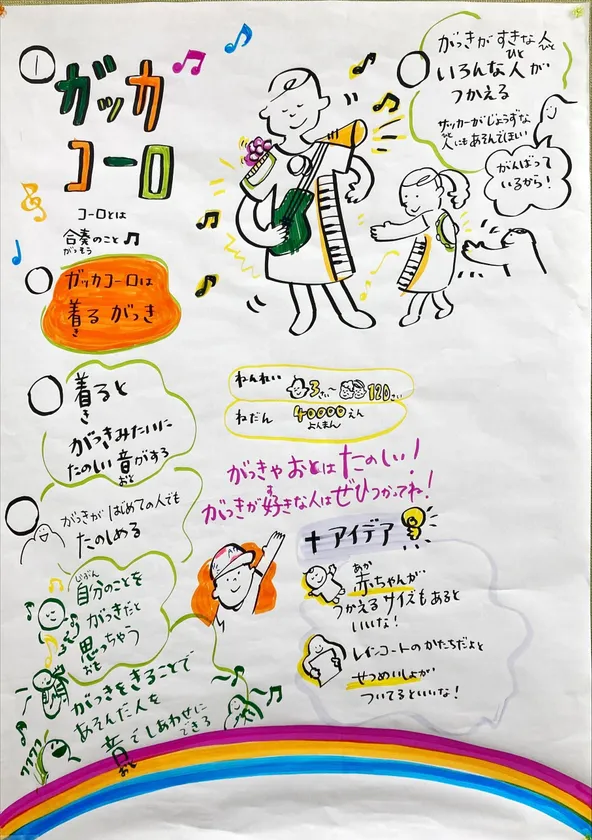 ①
ガッカ
コーロ
コーロとは
合奏のこと
がっそう
ガッカコーロは
着る がっき
き
着ると
き
がっきみたいに
たのしい音がする
おと
がっきがはじめての人でも
たのしめる
じぶん
自分のことを
がっきだと
思っちゃう
おも
がっきをきることで
あそんだ人を
音でしあわせに
できる
おと
がっきがすきな人
ひと
ひと
いろんな人が
つかえる
サッカーがじょうずな
人にもあそんでほしい
がんばって
いるから!
ねんれい 3さい〜 120さい
ねだん 40000えん
よんまん
がっきやおとはたのしい!
す
がっきが好きな人はぜひつかってね!
+アイデア
あか
赤ちゃんが
つかえるサイズもあると
いいな!
レインコートのかたちだよと
せつめいしょが
ついてるといいな!